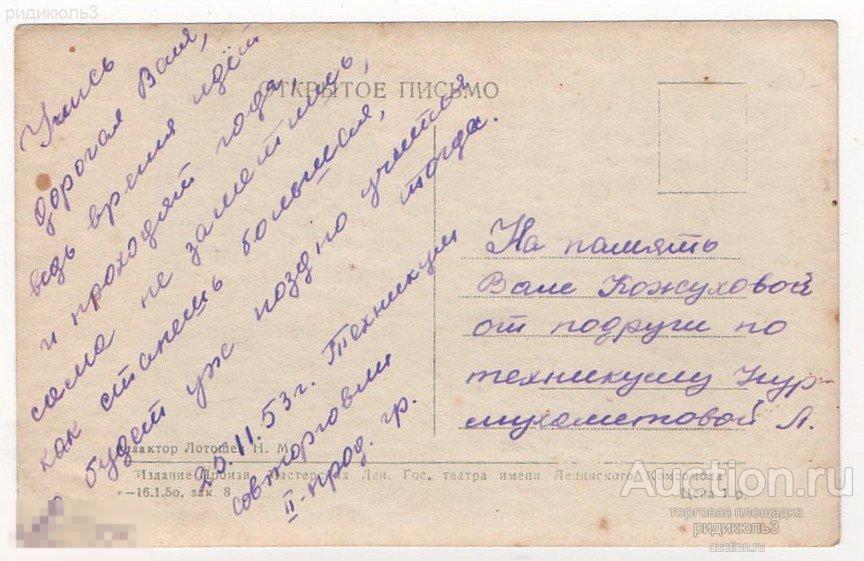 ридикюль3
ОТКРЫТОЕ ПИСЬМО
Учись
дорогая Валя,
ведь время идёт
и проходят года,
сама не заметишь,
как станешь большая,
и будет уж поздно учиться
тогда.
25.11.53г. Техникум
совторговли
II-прод. гр.
На память
Вале Кожуховой
от подруги по
техникуму Нур-
мухаметовой Л.
Редактор Лотошев Н. М.
Издание Произв. Мастерских Лен. Гос. театра имени Ленинского Комсомола
—16.1.50, зак. 8
Цена 1 р.
Auction.ru
торговая площадка
ридикюль3
auction.ru